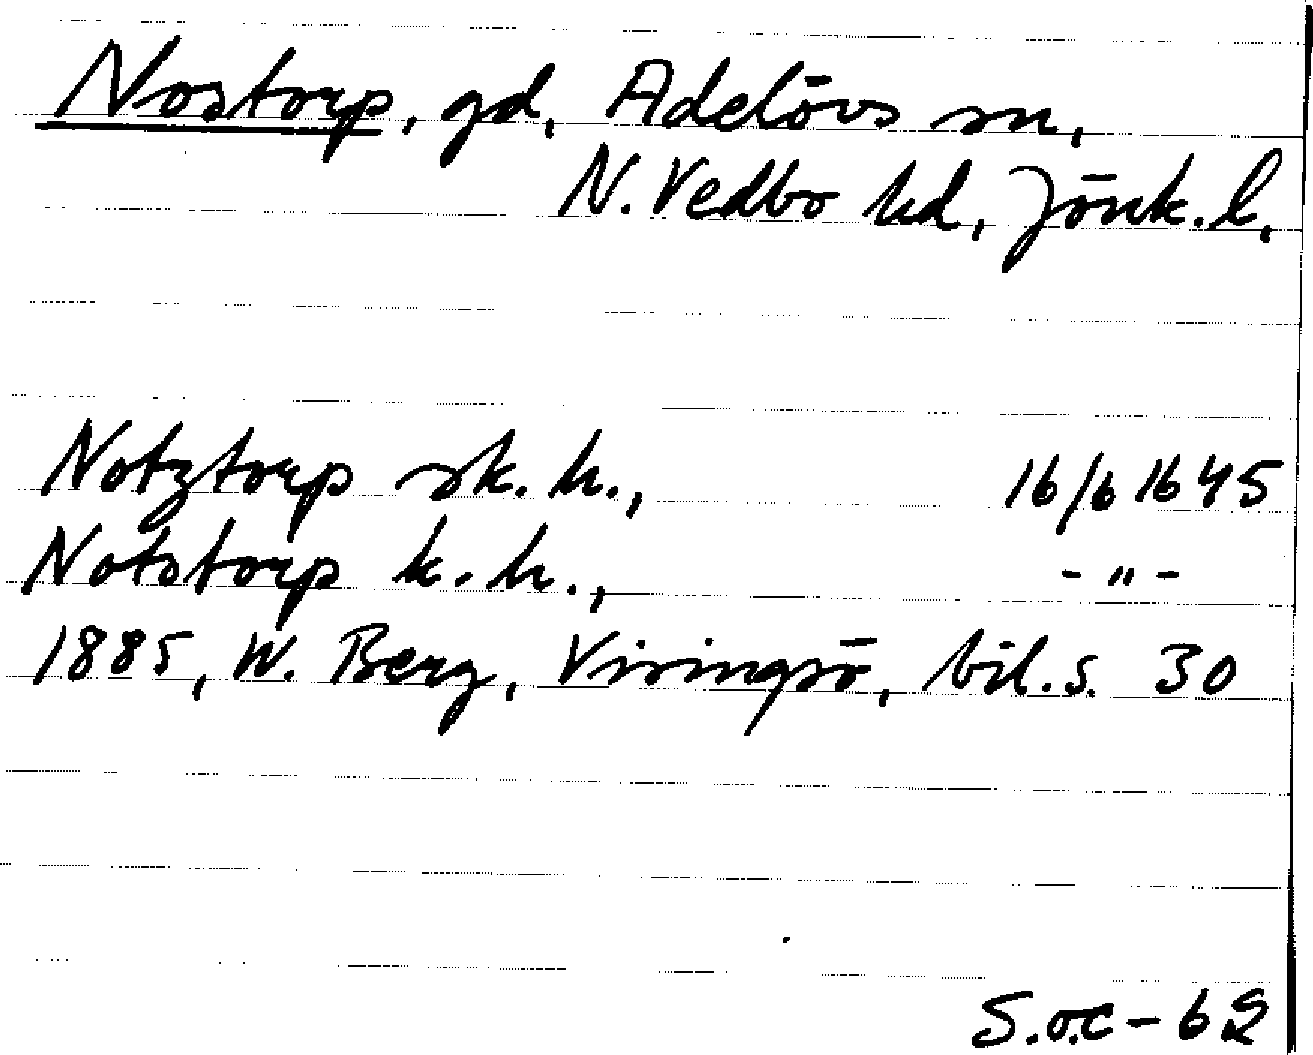 Nostorp, gd, Adelövs sn,
N. Vedbo hd, Jönk. l.
Notztorp sk. h., 16/6 1645
Notstorp k. h., - " -
1885, W. Berg, Visingsö, bil. s. 30
S.o.C - 62